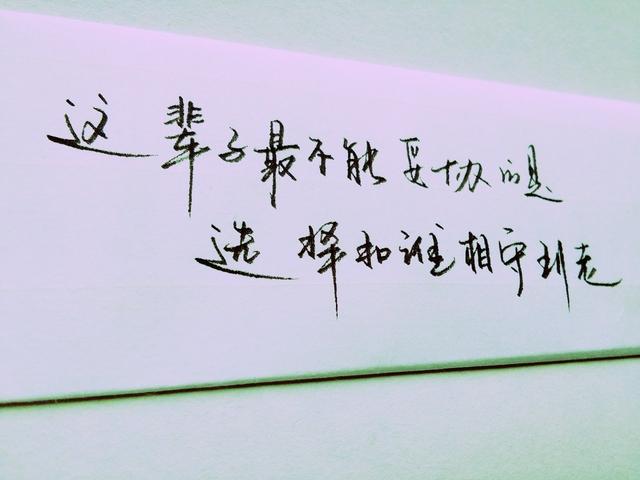 这辈子最不能妥协的是
选择和谁相守到老